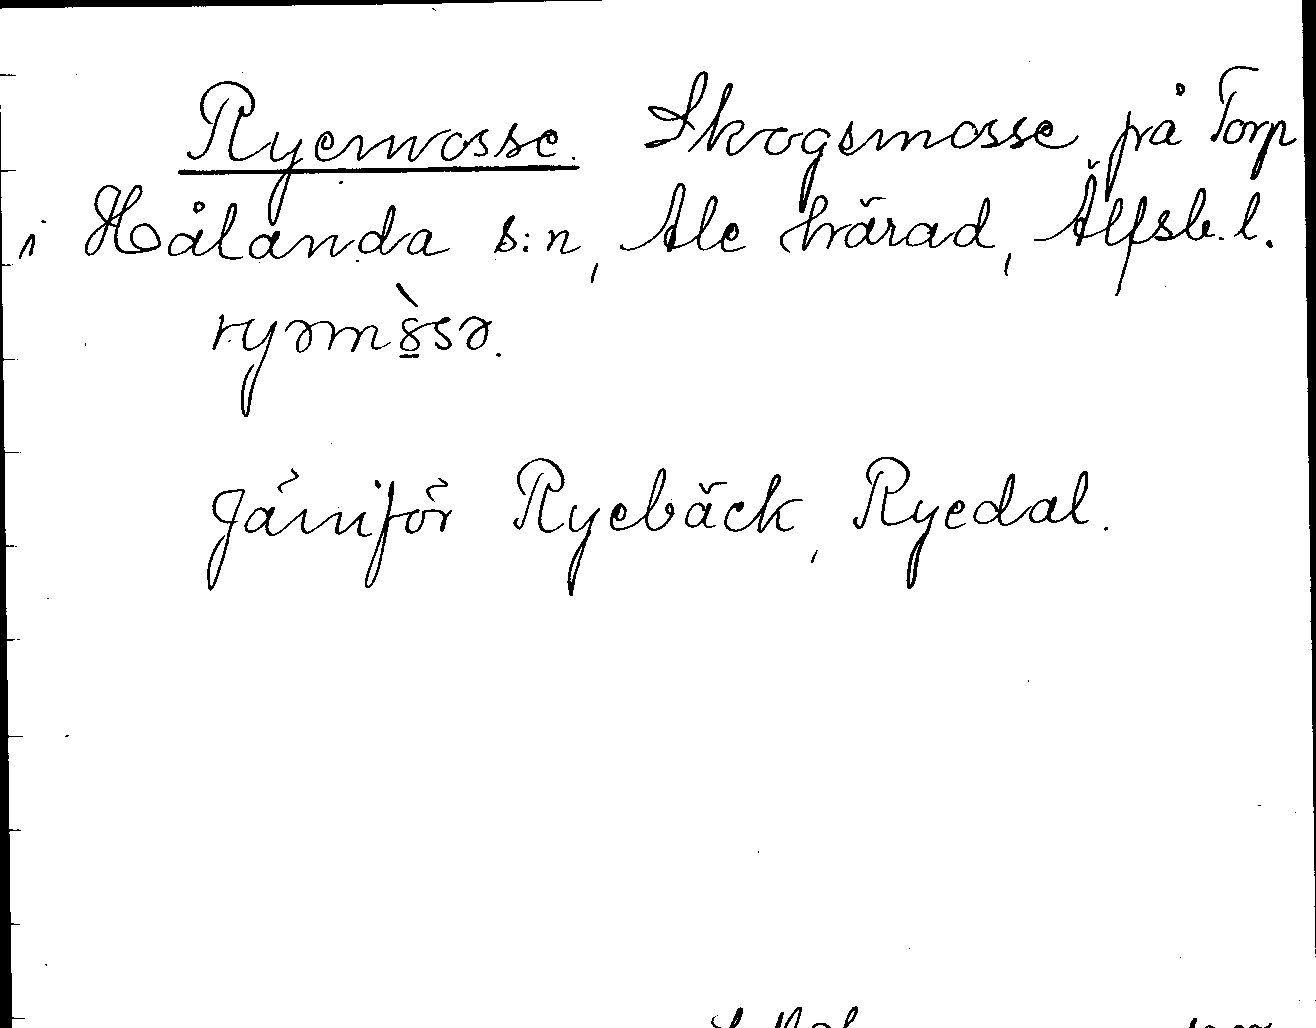 Ryemosse. Skogsmosse på Torp
i Hålanda s:n, Ale härad, Älfsb. l.
ryəmò̱sə.
Jämför Ryebäck, Ryedal.